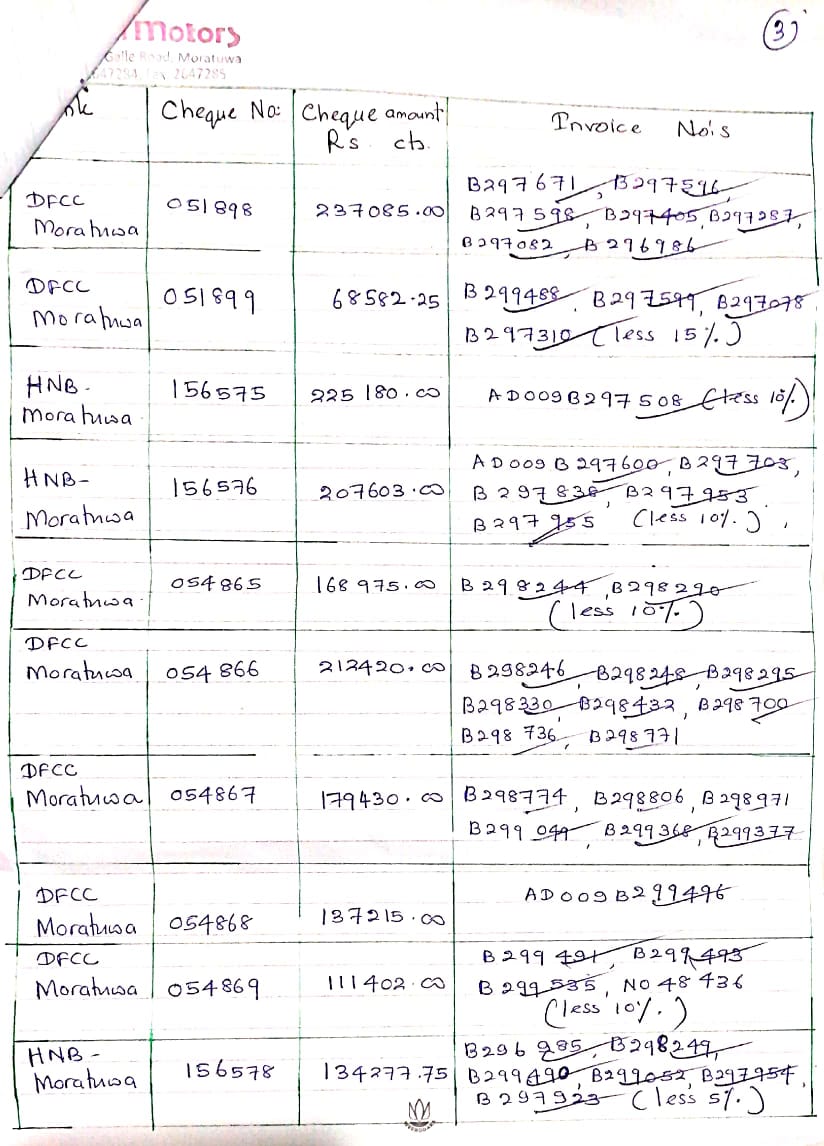 Motors
Galle Road, Moratuwa
2647285
3
Cheque No: Cheque amount Invoice No's
Rs. cts.
DFCC 051898 237085.00 B297671, B297596,
Moratuwa B297598, B297405, B297287,
B297082, B296986
DFCC 051899 68582.25 B299488, B297599, B297078
Moratuwa B297310 (less 15%.)
HNB- 156575 225180.00 AD009B297508 (less 10%.)
Moratuwa.
HNB- 156576 207603.00 AD009B297600, B297703,
Moratuwa B297838, B297953
B297955 (less 10%.)
DFCC 054865 168975.00 B298244, B298290
Moratuwa. (less 10%.)
DFCC
Moratuwa 054866 212420.00 B298246, B298248, B298295
B298330, B298432, B298700
B298736, B298771
DFCC
Moratuwa 054867 179430.00 B298774, B298806, B298971
B299049, B299368, B299377
DFCC AD009B299496
Moratuwa 054868 137215.00
DFCC B299491, B299493
Moratuwa 054869 111402.00 B299535, NO 48436
(less 10%.)
HNB- B296985, B298249,
Moratuwa 156578 134277.75 B299490, B299052, B297954,
B297923 (less 5%.)